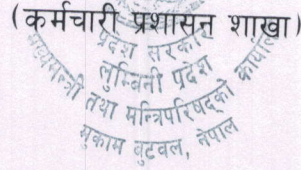 (कर्मचारी प्रशासन शाखा)
प्रदेश सरकार
लुम्बिनी प्रदेश
मुख्यमन्त्री तथा मन्त्रिपरिषद्को कार्यालय
मुकाम बुटवल, नेपाल